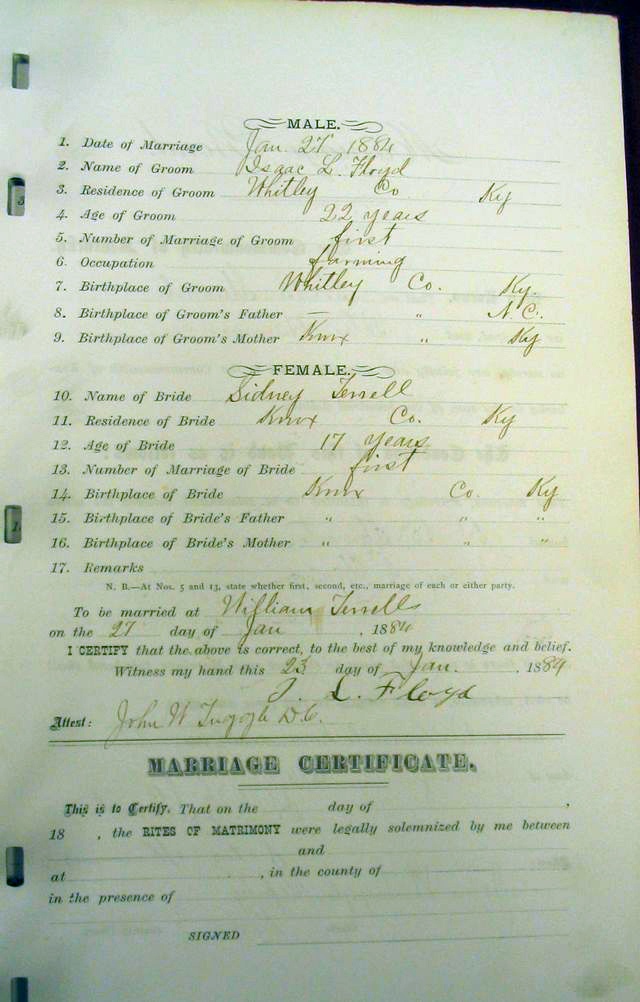 MALE.
1. Date of Marriage Jan. 27 1884
2. Name of Groom Isaac L. Floyd
3. Residence of Groom Whitley Co Ky
4. Age of Groom 22 years
5. Number of Marriage of Groom first
6. Occupation farming
7. Birthplace of Groom Whitley Co. Ky.
8. Birthplace of Groom's Father — " N.C.
9. Birthplace of Groom's Mother Knox " Ky
FEMALE.
10. Name of Bride Sidney Terrell
11. Residence of Bride Knox Co. Ky
12. Age of Bride 17 years
13. Number of Marriage of Bride first
14. Birthplace of Bride Knox Co. Ky
15. Birthplace of Bride's Father " " "
16. Birthplace of Bride's Mother " " "
17. Remarks
N. B.—At Nos. 5 and 13, state whether first, second, etc., marriage of each or either party.
To be married at William Terrells
on the 27 day of Jan , 1884
I CERTIFY that the above is correct, to the best of my knowledge and belief.
Witness my hand this 23 day of Jan. , 1884
L. Floyd
Attest: John W D.C.
MARRIAGE CERTIFICATE.
This is to Certify, That on the day of ,
18 , the RITES OF MATRIMONY were legally solemnized by me between
and
at , in the county of
in the presence of
SIGNED